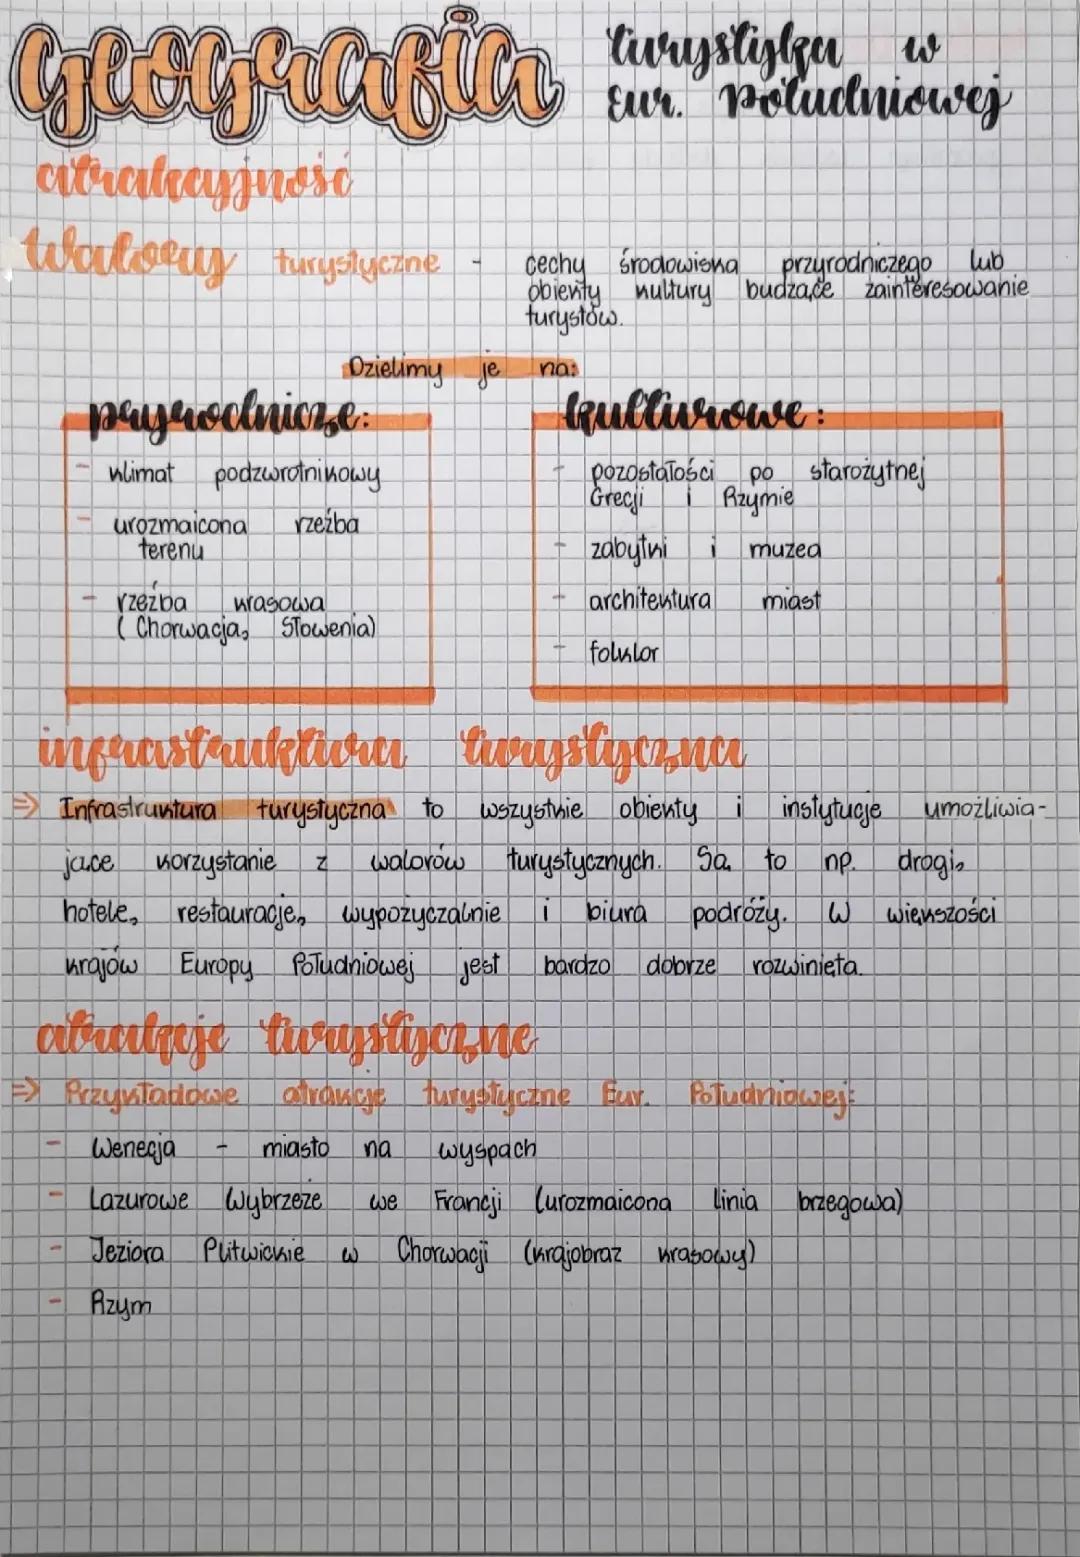 Geografia
turystyka w
Eur. Południowej
atrakcyjność
Walory turystyczne - cechy środowiska przyrodniczego lub
obiekty kultury budzące zainteresowanie
turystów.
Dzielimy je na:
przyrodnicze:
- klimat podzwrotnikowy
- urozmaicona rzeźba
terenu
- rzeźba krasowa
(Chorwacja, Słowenia)
kulturowe:
- pozostałości po starożytnej
Grecji i Rzymie
- zabytki i muzea
- architektura miast
- folklor
infrastruktura turystyczna
=> Infrastruktura turystyczna to wszystkie obiekty i instytucje umożliwia-
jące korzystanie z walorów turystycznych. Są to np. drogi,
hotele, restauracje, wypożyczalnie i biura podróży. W większości
krajów Europy Południowej jest bardzo dobrze rozwinięta.
atrakcje turystyczne
=> Przykładowe atrakcje turystyczne Eur. Południowej:
- Wenecja - miasto na wyspach
- Lazurowe Wybrzeże we Francji (urozmaicona linia brzegowa)
- Jeziora Plitwickie w Chorwacji (krajobraz krasowy)
- Rzym